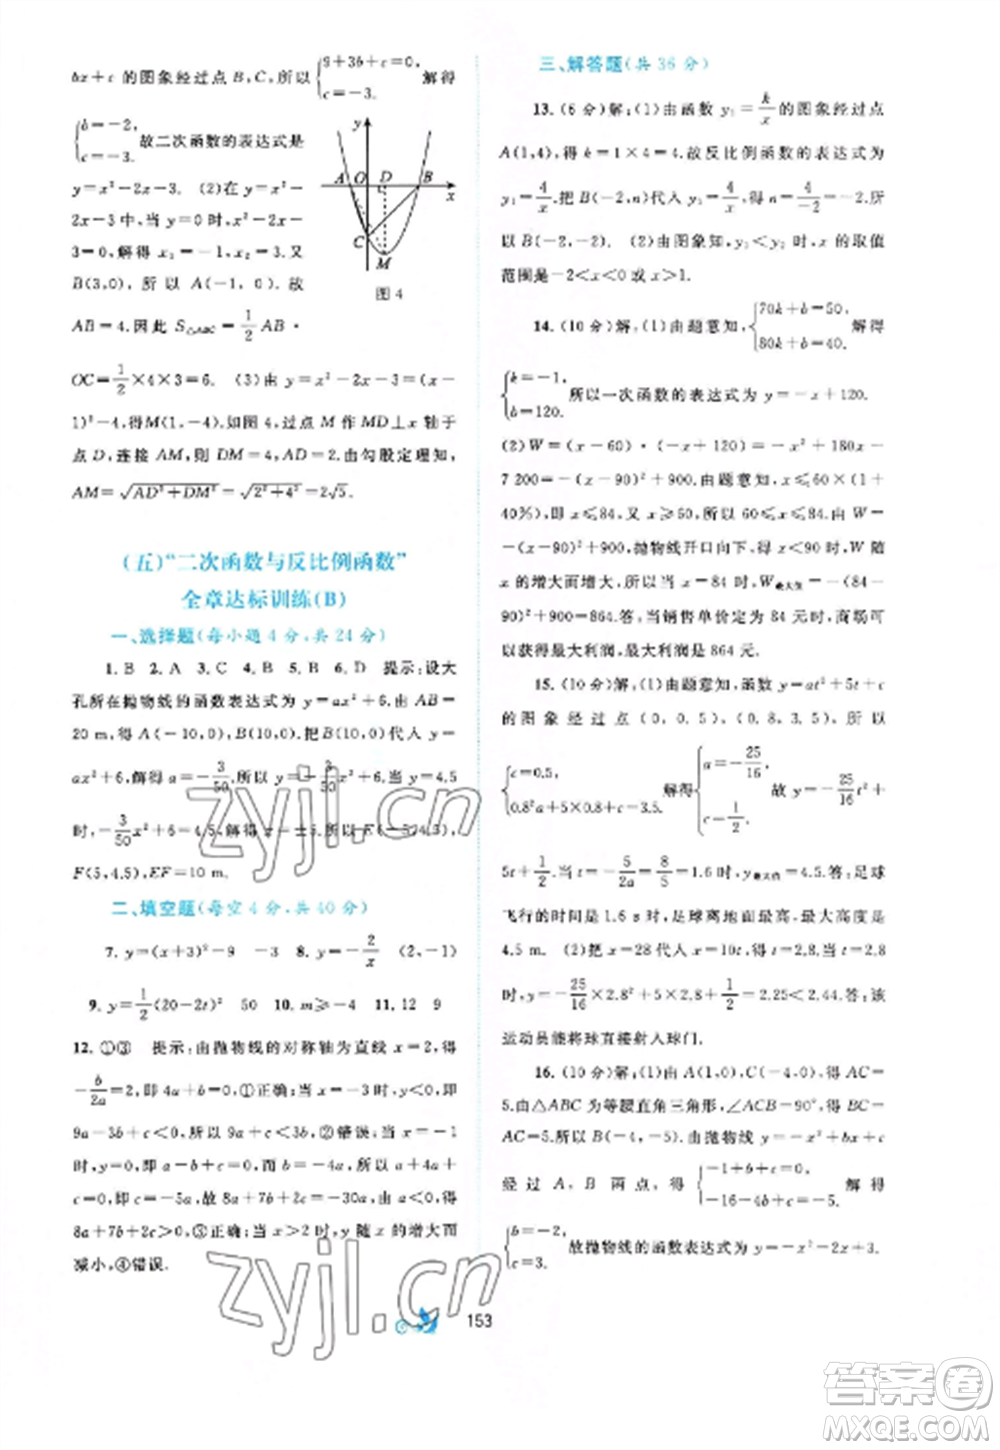 bx+c 的图象经过点 B,C,所以{9+3b+c=0, c=-3. 解得
{b=-2, c=-3. 故二次函数的表达式是
y=x²-2x-3. (2)在 y=x²-
2x-3 中,当 y=0 时,x²-2x-
3=0,解得 x₁=-1,x₂=3. 又
B(3,0),所以 A(-1,0). 故
AB=4. 因此 S△ABC=1/2 AB·
y A O D B x C M
图 4
OC=1/2×4×3=6. (3)由 y=x²-2x-3=(x-
1)²-4,得 M(1,-4). 如图 4,过点 M 作 MD⊥x 轴于
点 D,连接 AM,则 DM=4,AD=2. 由勾股定理知,
AM=√AD²+DM²=√2²+4²=2√5.
(五)“二次函数与反比例函数”
全章达标训练(B)
一、选择题(每小题 4 分,共 24 分)
1. B 2. A 3. C 4. B 5. B 6. D 提示:设大
孔所在抛物线的函数表达式为 y=ax²+6. 由 AB=
20 m,得 A(-10,0),B(10,0). 把 B(10,0)代入 y=
ax²+6,得 a=-3/50,所以 y=-3/50x²+6. 当 y=4.5
时,-3/50x²+6=4.5,解得 x=±5,所以 E(-5,4.5),
F(5,4.5),EF=10 m.
二、填空题(每空 4 分,共 40 分)
7. y=(x+3)²-9 -3 8. y=-2/x (2,-1)
9. y=1/2(20-2t)² 50 10. m≥-4 11. 12 9
12. ①③ 提示:由抛物线的对称轴为直线 x=2,得
-b/2a=2,即 4a+b=0,①正确;当 x=-3 时,y<0,即
9a-3b+c<0,所以 9a+c<3b,②错误;当 x=-1
时,y=0,即 a-b+c=0. 又 b=-4a,所以 a+4a+c=
0,即 c=-5a,故 8a+7b+2c=-30a,由 a<0,得
8a+7b+2c>0,③正确;当 x>2 时,y 随 x 的增大而
减小,④错误.
三、解答题(共 36 分)
13. (6 分)解:(1)由函数 y₁=k/x的图象经过点
A(1,4),得 k=1×4=4. 故反比例函数的表达式为
y₁=4/x. 把 B(-2,n)代入 y₁=4/x,得 n=4/-2=-2. 所
以 B(-2,-2). (2)由图象知,y₁<y₂ 时,x 的取值
范围是-2<x<0 或 x>1.
14. (10 分)解:(1)由题意知,{70k+b=50, 80k+b=40. 解得
{k=-1, b=120. 所以一次函数的表达式为 y=-x+120.
(2) W=(x-60)·(-x+120)=-x²+180x-
7 200=-(x-90)²+900. 由题意知,x≤60×(1+
40%),即 x≤84. 又 x≥60,所以 60≤x≤84. 由 W=
-(x-90)²+900,抛物线开口向下,得 x<90 时,W 随
x 的增大而增大. 所以当 x=84 时,W最大值=-(84-
90)²+900=864. 答:当销售单价定为 84 元时,商场可
以获得最大利润,最大利润是 864 元.
15. (10 分)解:(1)由题意知,函数 y=at²+5t+c
的图象经过点 (0,0.5),(0.8,3.5),所以
{c=0.5, 0.8²a+5×0.8+c=3.5. 解得{a=-25/16, c=1/2. 故 y=-25/16t²+
5t+1/2. 当 t=-5/2a=8/5=1.6 时,y最大值=4.5. 答:足球
飞行的时间是 1.6 s 时,足球离地面最高,最大高度是
4.5 m. (2)把 x=28 代入 x=10t,得 t=2.8. 当 t=2.8
时,y=-25/16×2.8²+5×2.8+1/2=2.25<2.44. 答:该
运动员能将球直接射入球门.
16. (10 分)解:(1)由 A(1,0),C(-4,0),得 AC=
5. 由△ABC 为等腰直角三角形,∠ACB=90°,得 BC=
AC=5. 所以 B(-4,-5). 由抛物线 y=-x²+bx+c
经过 A,B 两点,得{-1+b+c=0, -16-4b+c=-5. 解得
{b=-2, c=3. 故抛物线的函数表达式为 y=-x²-2x+3.
153
zyjl.cn
zyjl.cn
答案圈
MXQE.COM